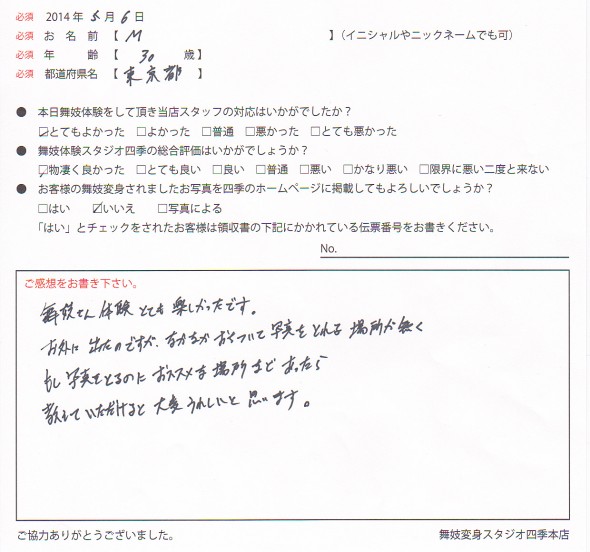 必須 2014年 5月 6日
必須 お 名 前 【 M 】(イニシャルやニックネームでも可)
必須 年 齢 【 30 歳】
必須 都道府県名 【 東京都 】
● 本日舞妓体験をして頂き当店スタッフの対応はいかがでしたか？
☑とてもよかった □よかった □普通 □悪かった □とても悪かった
● 舞妓体験スタジオ四季の総合評価はいかがでしょうか？
☑物凄く良かった □とても良い □良い □普通 □悪い □かなり悪い □限界に悪い二度と来ない
● お客様の舞妓変身されましたお写真を四季のホームページに掲載してもよろしいでしょうか？
□はい ☑いいえ □写真による
「はい」とチェックをされたお客様は領収書の下記にかかれている伝票番号をお書きください。
No.
ご感想をお書き下さい。
舞妓さん体験とても楽しかったです。
お外に出たのですが、なかなかおちついて写真をとれる場所が無く
もし写真をとるのにおススメな場所などあったら
教えていただけると大変うれしいと思います。
ご協力ありがとうございました。
舞妓変身スタジオ四季本店